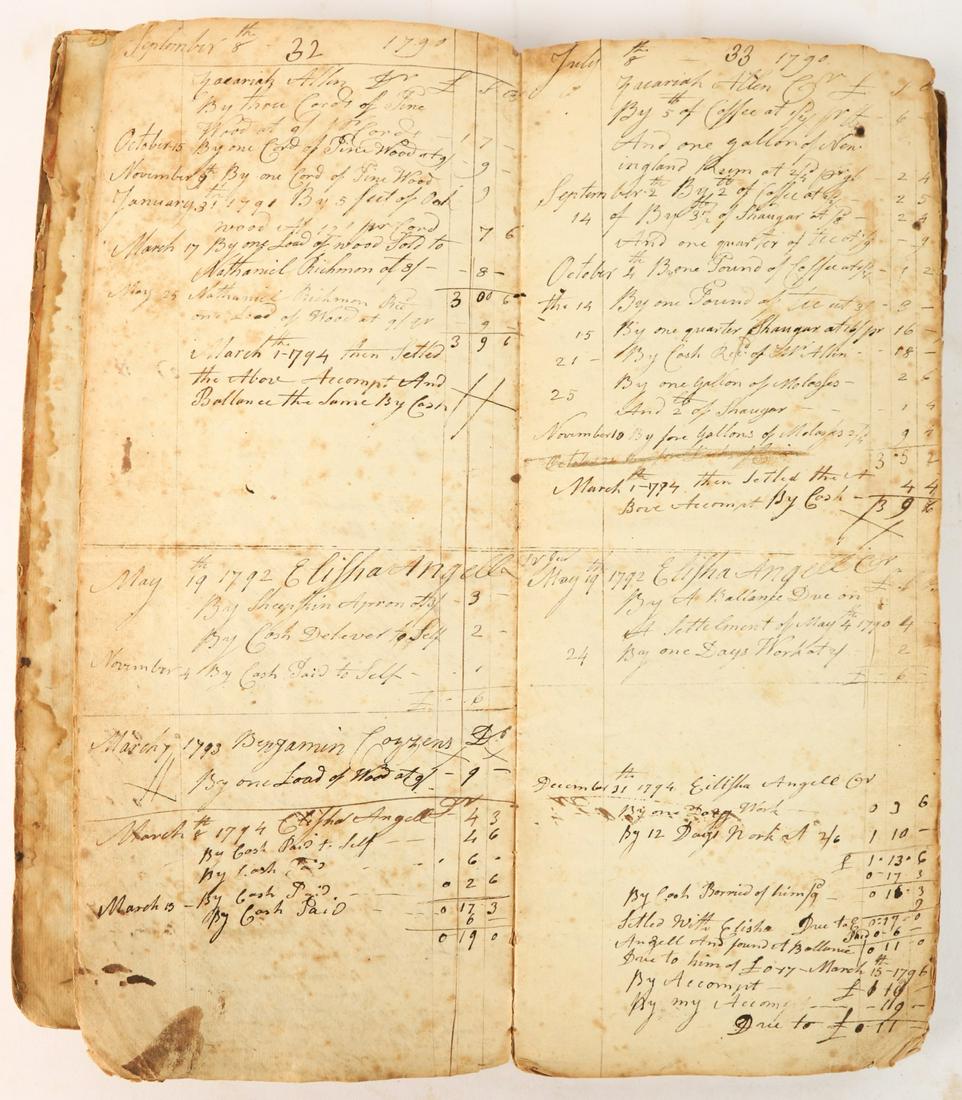 September 8th 32 1790
Zacariah Allin Dr £
By three Cords of Pine
Wood at 9/ Pr Cord - 1 7 -
October 15 By one Cord of Pine Wood at 9/ - 9 -
November 9th By one Cord of Pine Wood 9
January 31 1791 By 5 feet of Oak
wood At 12/ pr Cord 7 6
March 17 By one Load of wood Sold to
Nathaniel Richmon at 8/ - - 8 -
3 00 6
May 25 Nathaniel Richmon
one Load of Wood at 9/ 9 -
3 9 6
March 1th - 1794 then Setled
the Above Accompt And
Ballance the Same By Cash
May 19th 1792 Elisha Angell
By Sheepskin Apron at 3/ - 3 -
By Cash Deliver to Self 2 -
November 4 By Cash Paid to Self - 1
£ - 6 -
March 7 1793 Benjamin Cozzens Dr
By one Load of Wood at 9/ - 9 -
March 8th 1794 Elisha Angell Dr 4 3
By Cash Paid to Self 4 6
By Cash Paid 6 -
By Cash Paid 0 2 6
March 13 - By Cash Paid 0 17 3
0 19 0
July 8th 33 1790
Zacariah Allen Cr £
By 5th of Coffee at - 6 -
And one gallon of New
ingland Rum at 2/4 2 4
September 2 By 2th of Coffee at 2 5
14 of By 3th 1/2 of Shaugar At - 2 4
And one quarter of tee at - 9
October 4th By one Pound of Coffee at - 1 2
the 14 By one Pound of tee at 3/ 3 -
15 By one quarter Shaugar at 16 -
21 - By Cash Allen - - 18 -
25 By one Gallon of Molasses - 2 6
And 2th of Shaugar 1 4
November 10 By fore Gallons of Molases 9 4
3 5 2
March 1th - 1794 then Setled the A 4 4
Bove Accompt By Cash - 3 9 6
May 19th 1792 Elisha Angell Cr
By A Ballance Due on
A Settlement of May 4th 1790 4 -
24 By one Days Work at 2/ 2
£ - 6 -
December 31th 1794 Eilisha Angell Cr
By one Days Work 0 3 6
By 12 Days Work At 2/6 1 10 -
£ 1 13 6
0 17 3
By Cash Borried of him 0 16 3
Setled With Elisha Due to 0 17 0
Angell And found A Ballance Paid 0 6 -
0 11 0
Due to him of £ 0 17 - March 15th - 1796
By Accompt £ 1 10 -
By my Accompt - 19 -
Due to £ 0 11 -